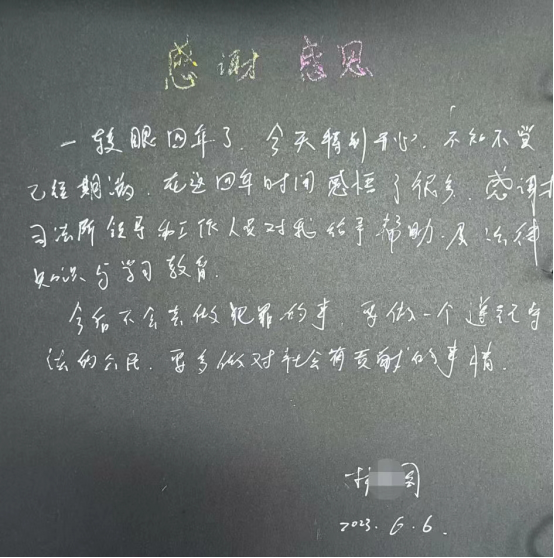 感谢 感恩
一转眼四年了，今天特别开心，不知不觉
已经期满，在这四年时间感悟了很多，感谢
司法所领导和工作人员对我给予帮助，及法律
知识与学习教育。
今后不会去做犯罪的事，要做一个遵纪守
法的公民，要多做对社会有贡献的事情。
2023.6.6.